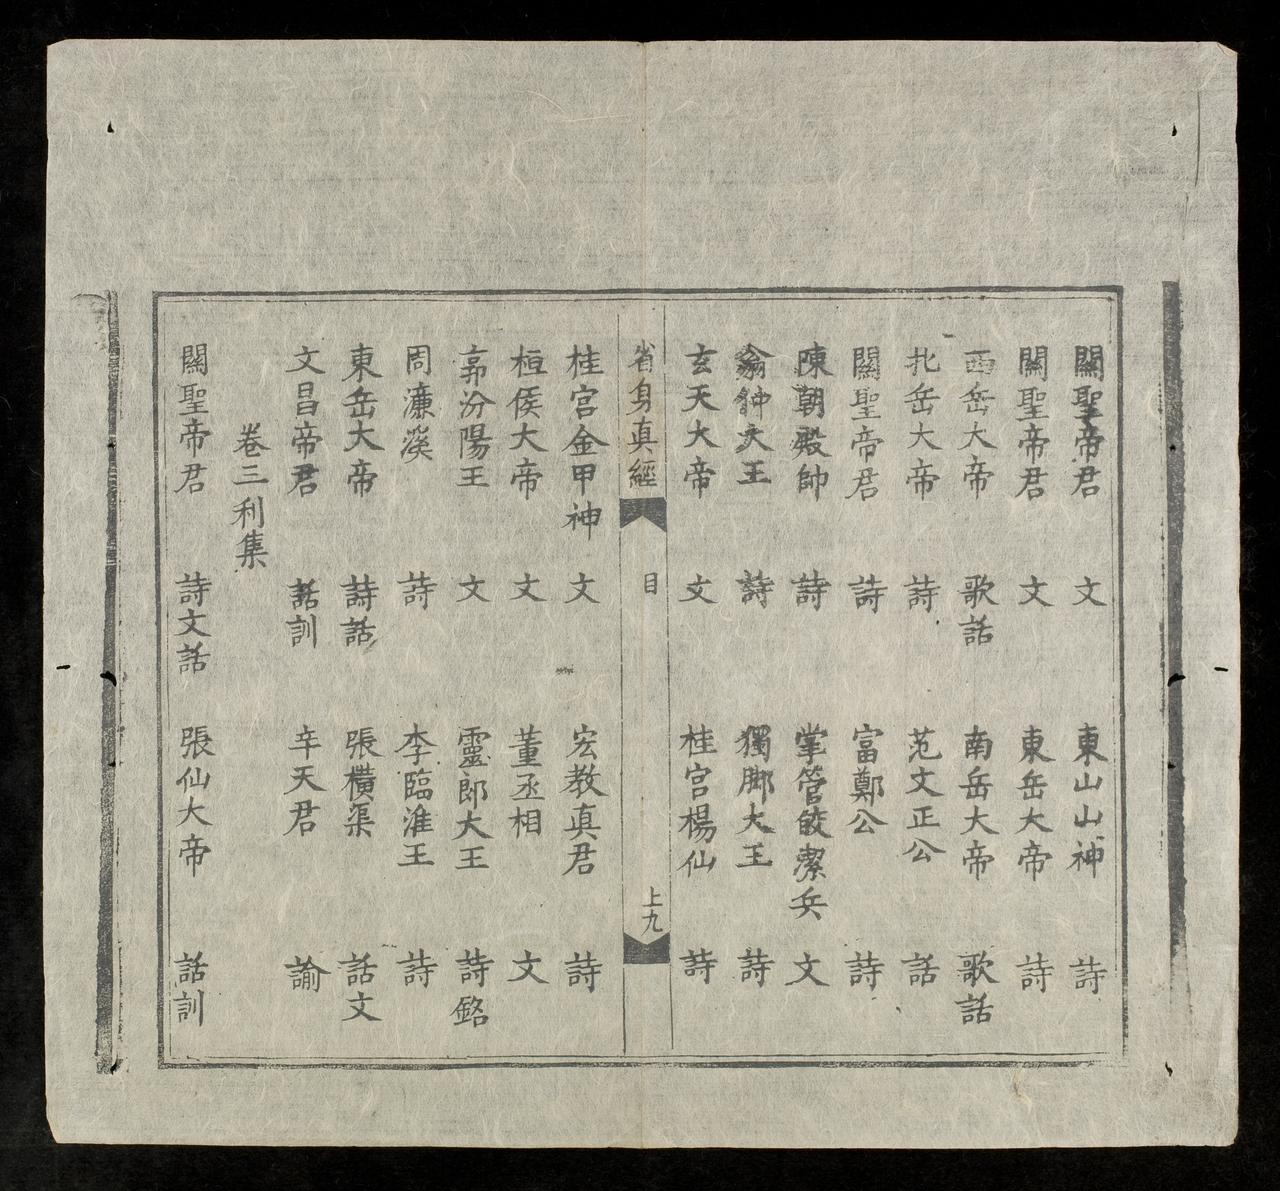 關聖帝君 文 東山山神 詩
關聖帝君 文 東岳大帝 詩
西岳大帝 歌話 南岳大帝 歌話
北岳大帝 詩 范文正公 話
關聖帝君 詩 富鄭公 詩
陳朝殿帥 詩 掌管皎潔兵 文
翁鈡大王 詩 獨脚大王 詩
玄天大帝 文 桂宮楊仙 詩
省身真經 目 上九
桂宮金甲神 文 宏教真君 詩
桓侯大帝 文 董丞相 文
郭汾陽王 文 靈郎大王 詩銘
周濂溪 詩 李臨淮王 詩
東岳大帝 詩話 張橫渠 話文
文昌帝君 話訓 辛天君 諭
卷三利集
關聖帝君 詩文話 張仙大帝 話訓